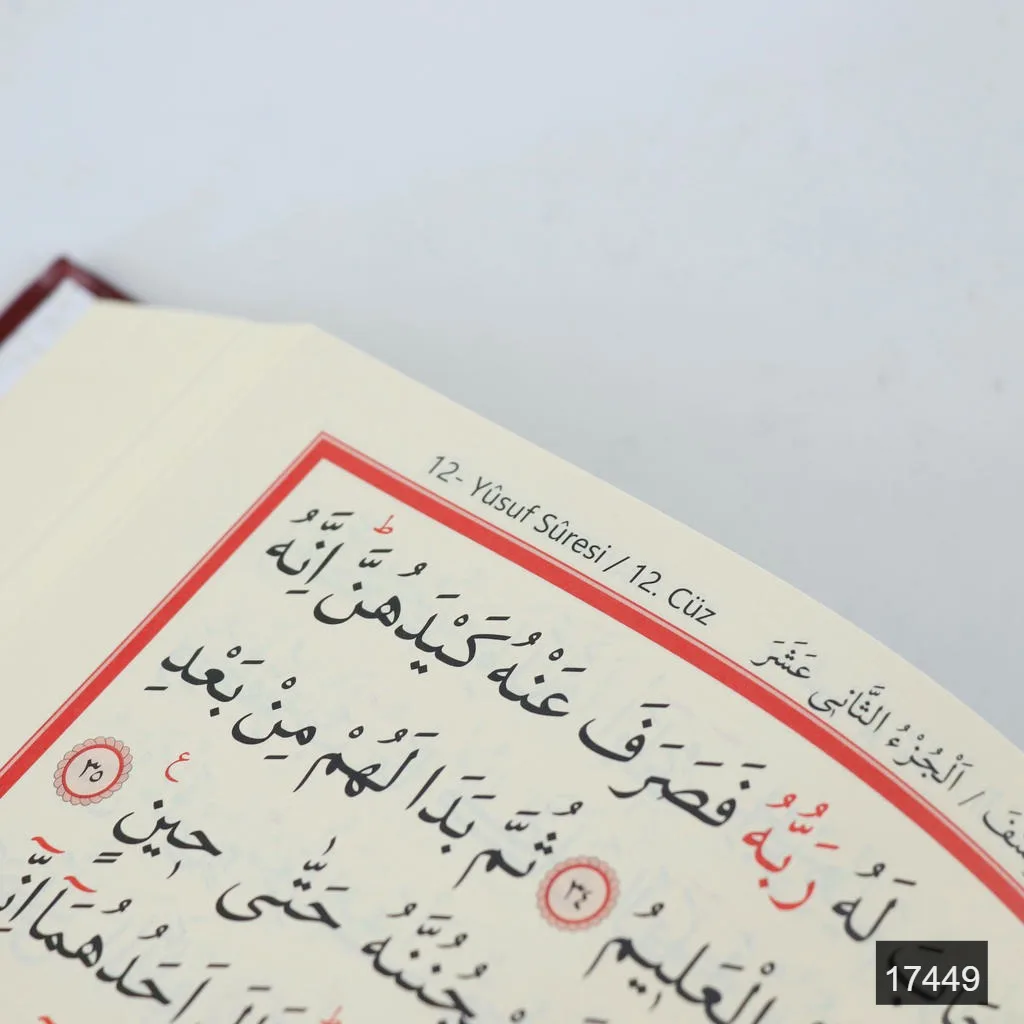 12- Yûsuf Sûresi / 12. Cüz
اَلْجُزْءُ الثَّانٖى عَشَرَ
لَهُ رَبُّهُ فَصَرَفَ عَنْهُ كَيْدَهُنَّ ط اِنَّهُ
الْعَلٖيمُ ٣٤ ثُمَّ بَدَا لَهُمْ مِنْ بَعْدِ
حَتّٰى حٖينٍ ع ٣٥
اَحَدُهُمَٓا
17449